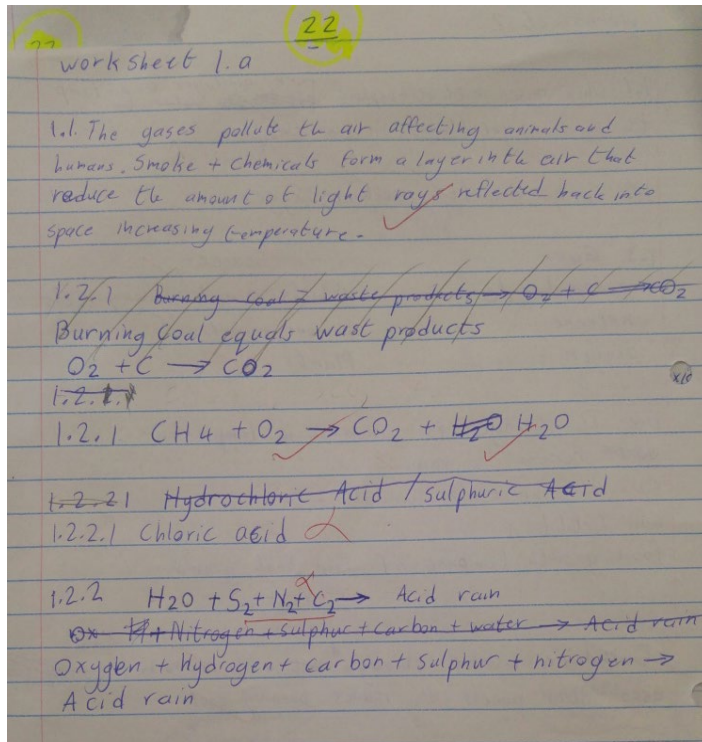 22
worksheet 1.a
1.1. The gases pollute th air affecting animals and
humans. Smoke + chemicals form a layer in th air that
reduce the amount of light rays reflected back into
space increasing temperature.
1.2.1 Burning coal = waste products → O2 + C → CO2
Burning coal equals wast products
O2 + C → CO2
1.2.1.
1.2.1 CH4 + O2 → CO2 + H2O H2O
1.2.21 Hydrochloric Acid / sulphuric Acid
1.2.2.1 Chloric acid
1.2.2 H2O + S2 + N2 + C2 → Acid rain
Ox H + Nitrogen + sulphur + carbon + water → Acid rain
Oxygen + Hydrogen + carbon + sulphur + nitrogen →
Acid rain